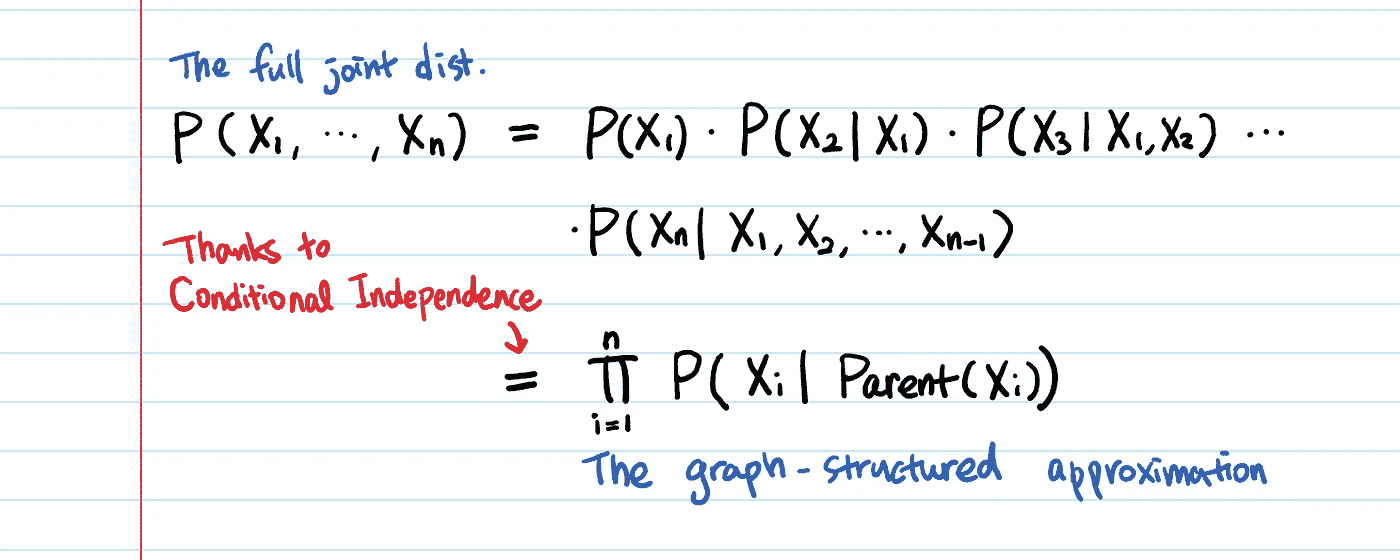 The full joint dist.
P(X₁, ⋯, Xₙ) = P(X₁) · P(X₂ | X₁) · P(X₃ | X₁, X₂) ⋯
· P(Xₙ | X₁, X₂, ⋯, Xₙ₋₁)
Thanks to
Conditional Independence
= ∏ᵢ₌₁ⁿ P(Xᵢ | Parent(Xᵢ))
The graph-structured approximation